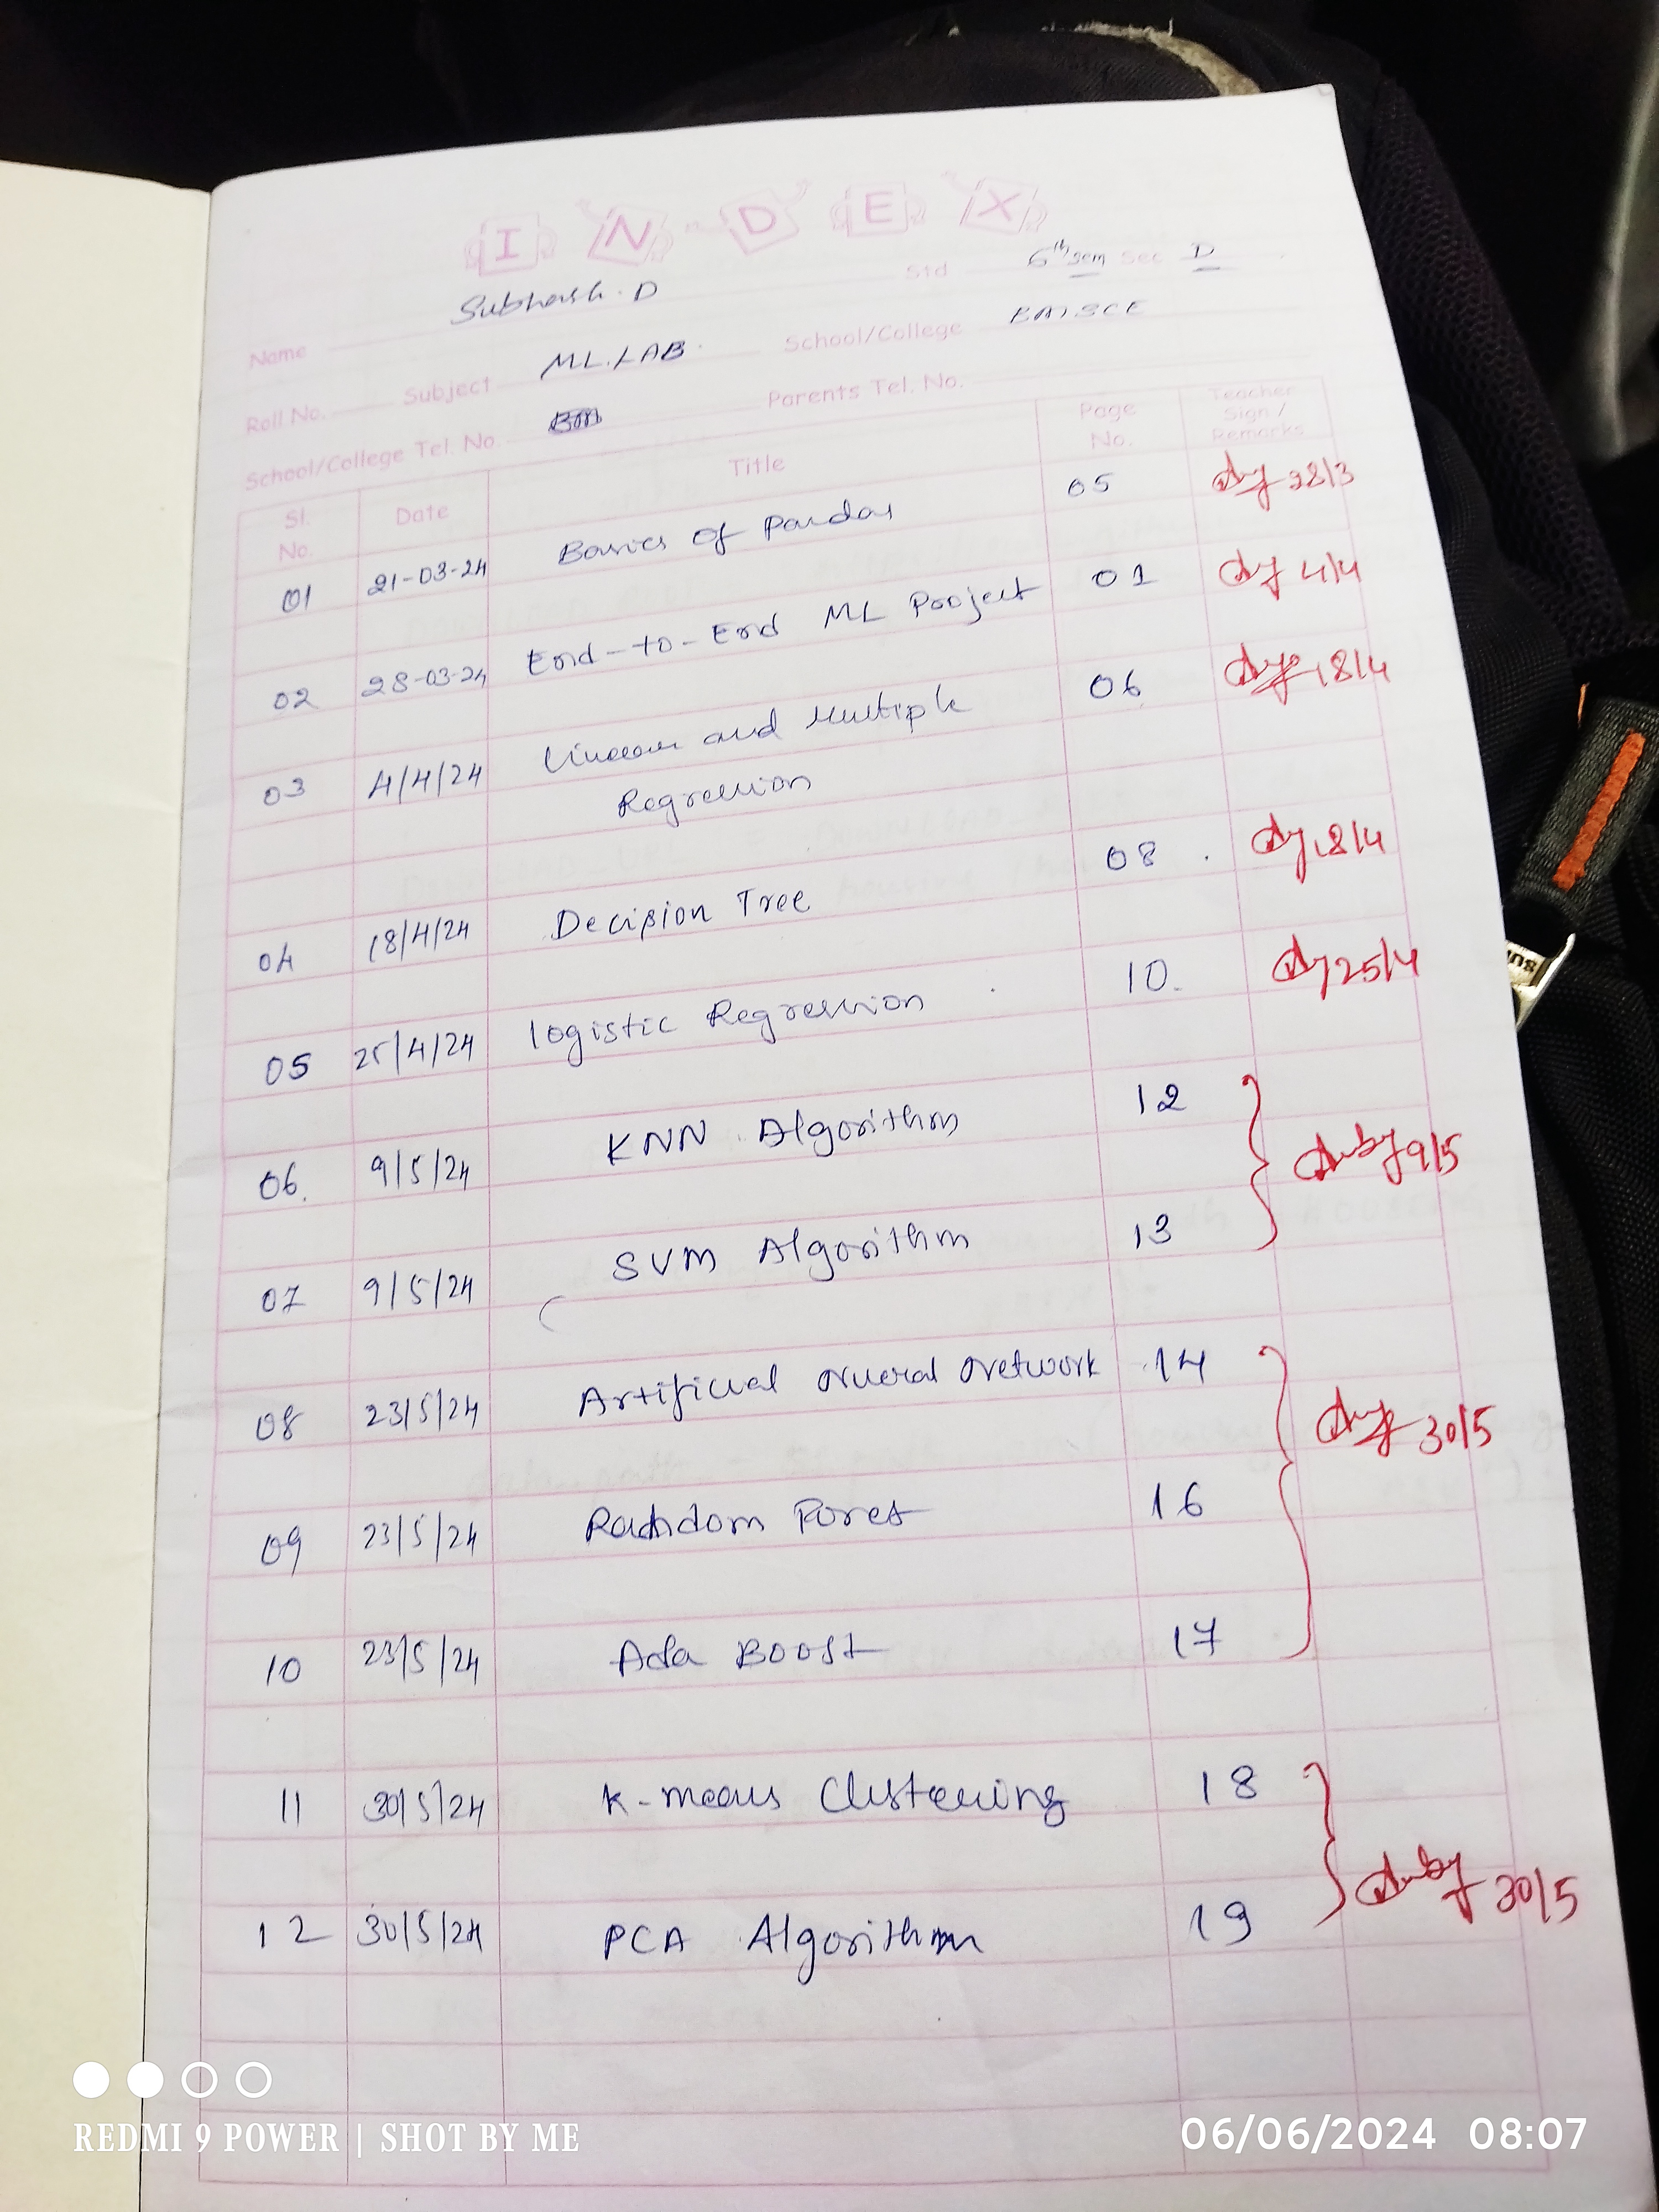 INDEX
Name Subhash. D Std 6th sem Sec D
Roll No. Subject ML.LAB. School/College BMSCE
School/College Tel. No. Parents Tel. No.
Sl. No. Date Title Page No. Teacher Sign / Remarks
01 21-03-24 Basics of Pandas 05 28/3
02 28-03-24 End-to-End ML Project 01 4/4
03 4/4/24 Linear and Multiple 06 18/4
Regression
04 18/4/24 Decision Tree 08 18/4
05 25/4/24 logistic Regression 10. 25/4
06. 9/5/24 KNN Algorithm 12
9/5
07 9/5/24 SVM Algorithm 13
08 23/5/24 Artificial Nueral Network 14
30/5
09 23/5/24 Random Forest 16
10 23/5/24 Ada Boost 17
11 30/5/24 K-means Clustering 18
30/5
12 30/5/24 PCA Algorithm 19
REDMI 9 POWER | SHOT BY ME
06/06/2024 08:07